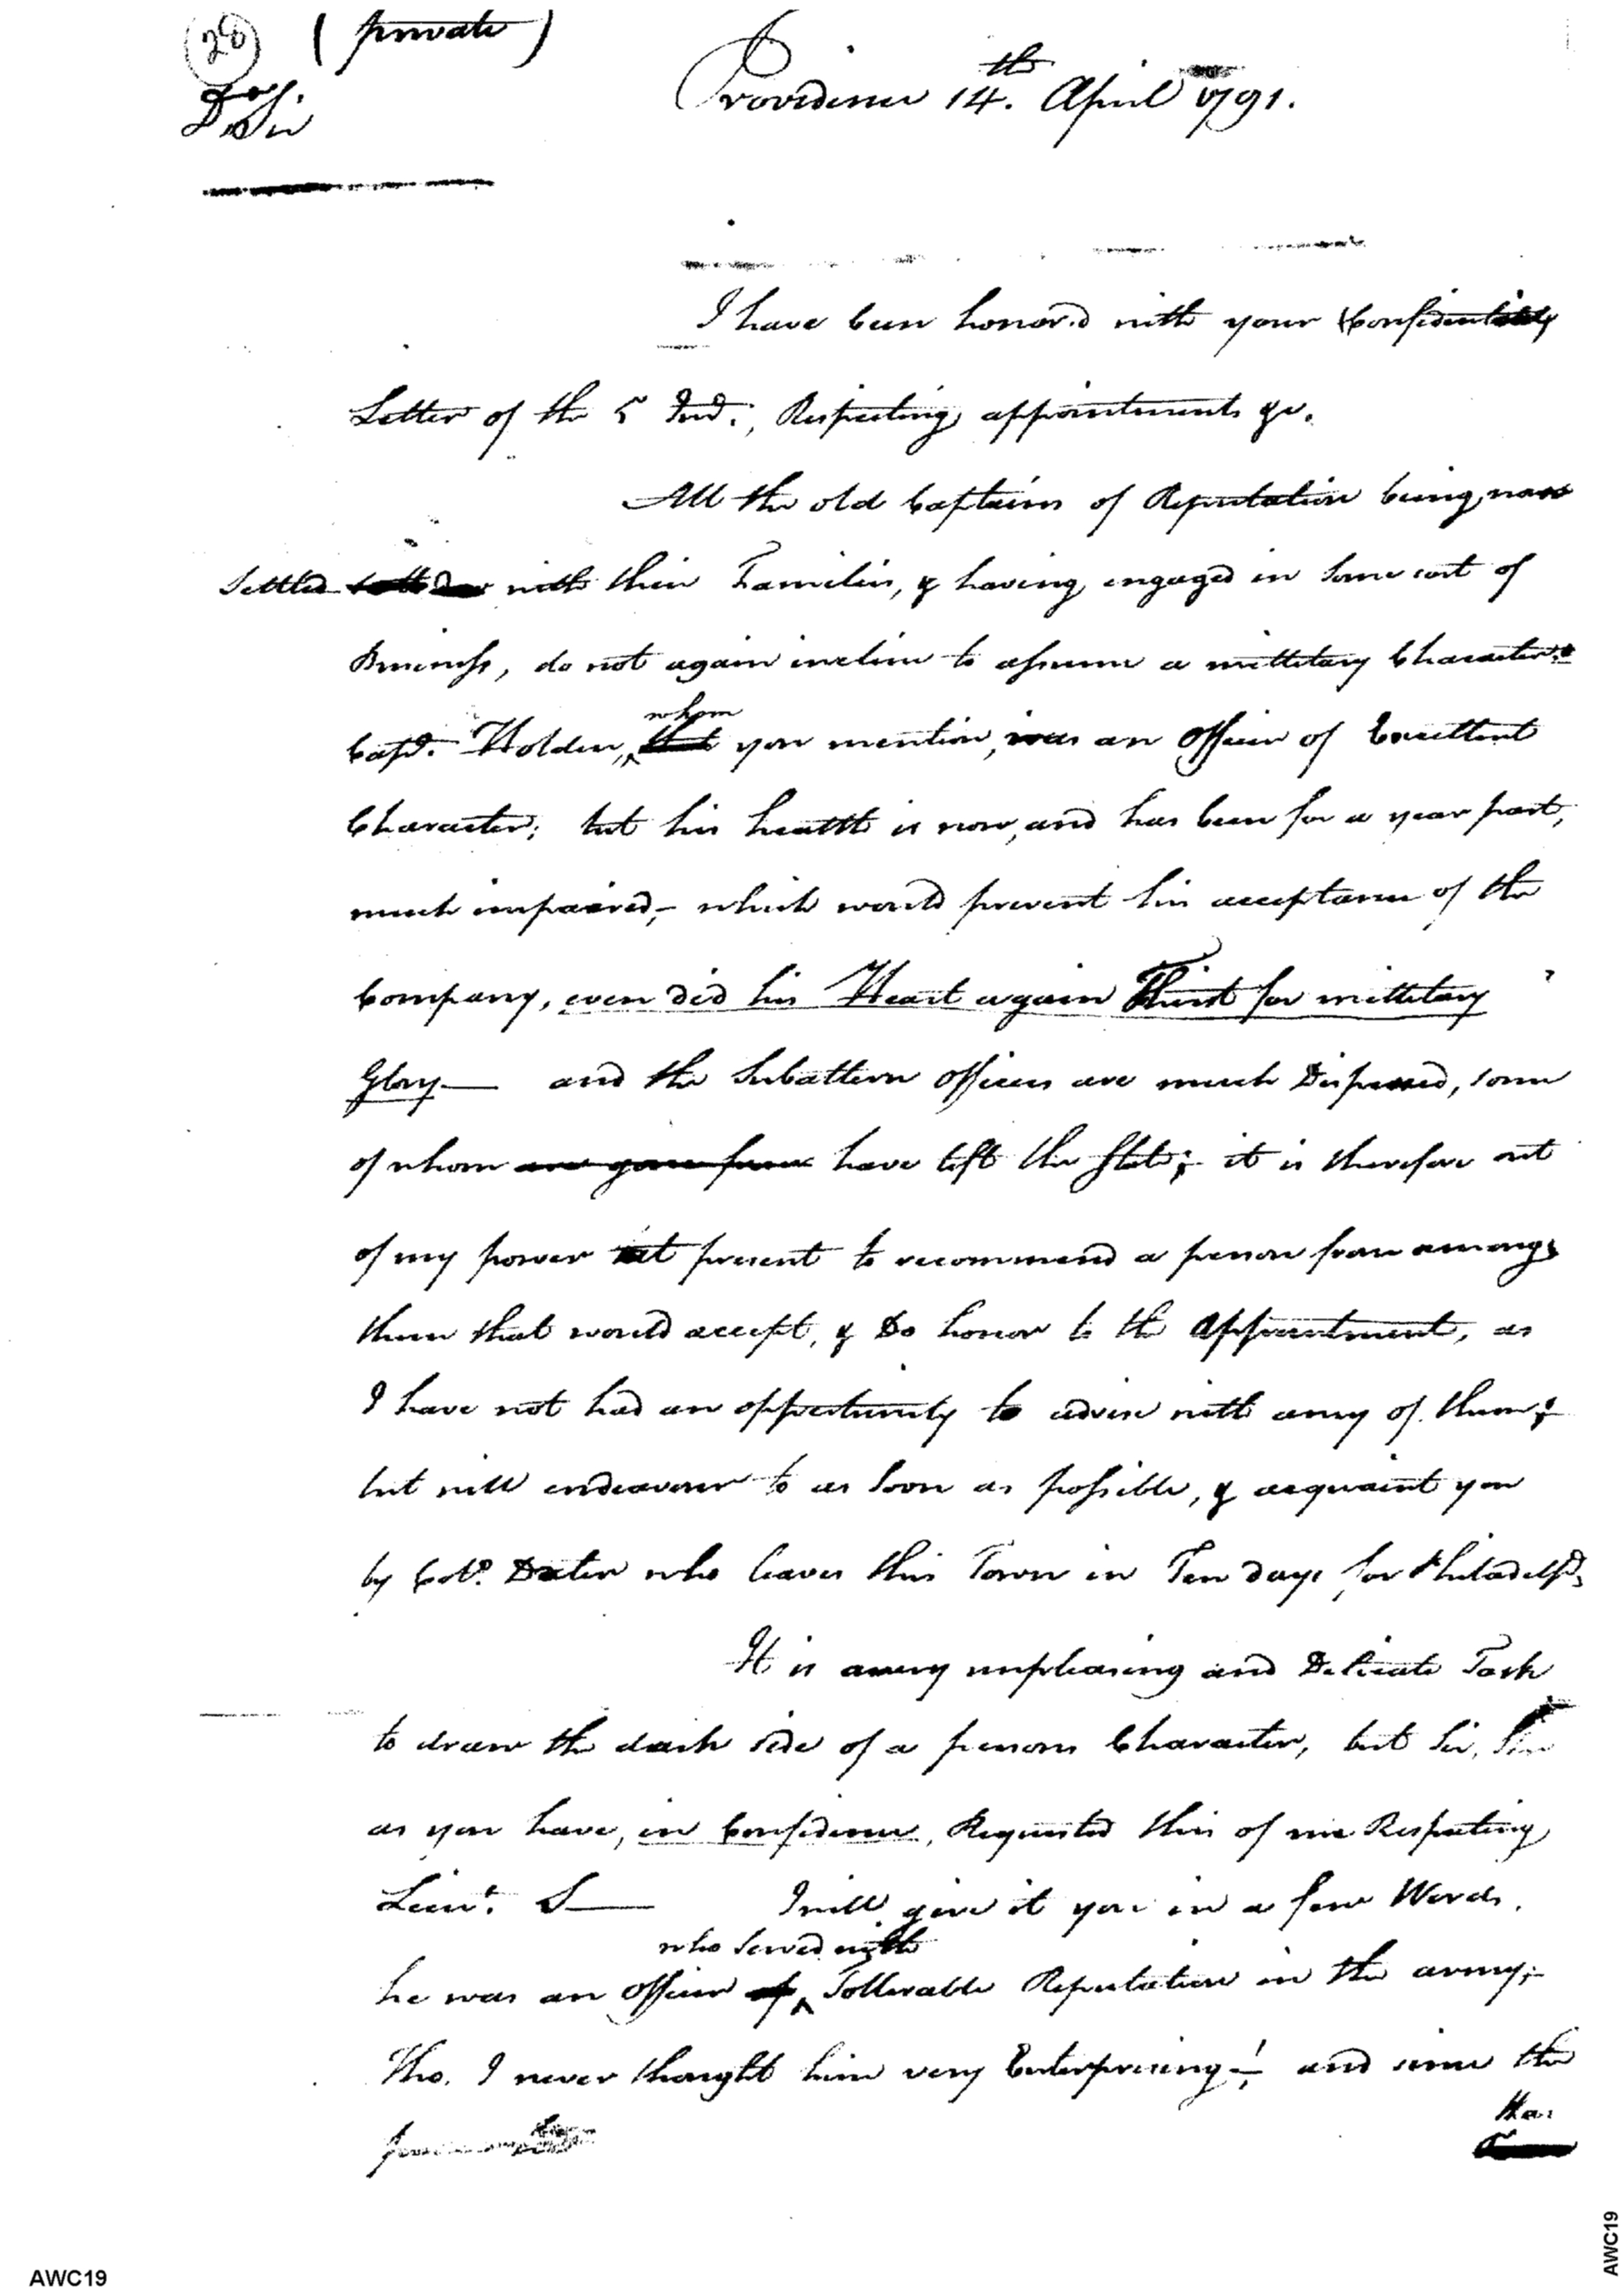 (28) (private)
Providence 14.th April 1791.
Dr Sir
I have been honor.d with your Confidential
Letter of the 5 Ind:, Respecting appointments &c.
All the old Captains of Reputation being now
Settled with their Families, & having engaged in some sort of
Business, do not again incline to assume a millitary Character.
Capt. Holden, whom you mention, was an Officer of Excellent
Character; but his health is now, and has been for a year past,
much impaired,- which would prevent his acceptance of the
Company, even did his Heart again Thirst for millitary
Glory— and the Subaltern Officers are much Dispersed, some
of whom are gone from have left the State;- it is therefore out
of my power at present to recommend a person from among
them that would accept, & Do honor to the Appointment, as
I have not had an opportunity to advise with any of them;
but will endeavour to as soon as possible, & acquaint you
by Col. Dexter who leaves this Town in Ten days for Philadelpa.
It is a very unpleasing and Delicate Task
to draw the dark side of a persons Character, but Sir,
as you have, in Confidence, Requested this of me Respecting
Lieut. S—— I will give it you in a few Words.
who served with
he was an Officer of Tollerable Reputation in the army;-
Tho. I never thought him very Enterprising-; and since the
Ha:
AWC19
AWC19